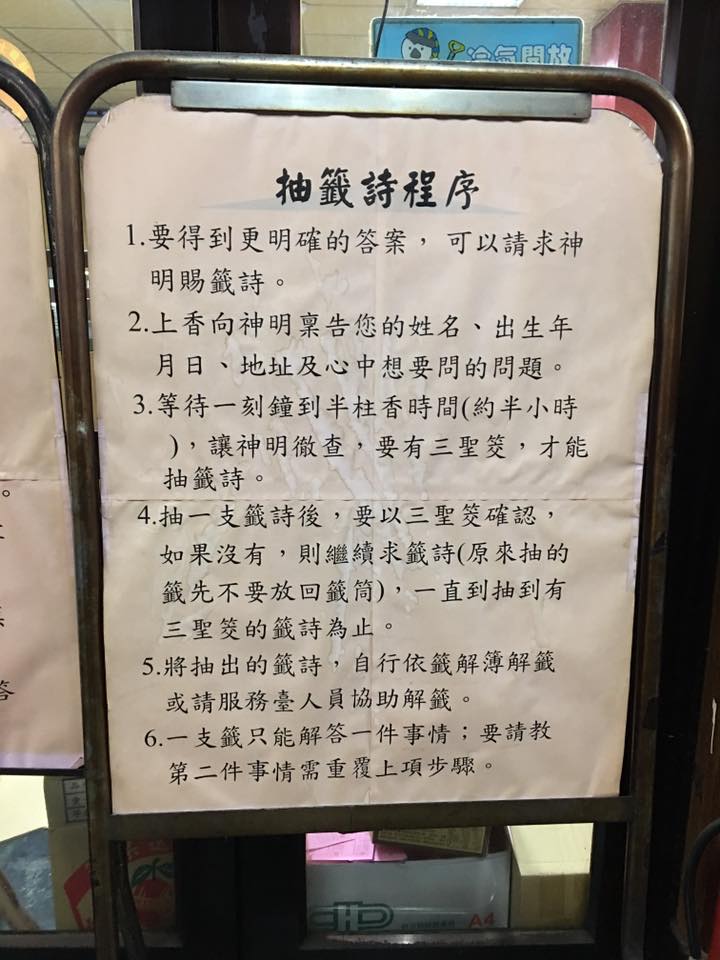 冷氣開放
抽籤詩程序
1.要得到更明確的答案，可以請求神
明賜籤詩。
2.上香向神明稟告您的姓名、出生年
月日、地址及心中想要問的問題。
3.等待一刻鐘到半柱香時間(約半小時
)，讓神明徹查，要有三聖筊，才能
抽籤詩。
4.抽一支籤詩後，要以三聖筊確認，
如果沒有，則繼續求籤詩(原來抽的
籤先不要放回籤筒)，一直到抽到有
三聖筊的籤詩為止。
5.將抽出的籤詩，自行依籤解薄解籤
或請服務臺人員協助解籤。
6.一支籤只能解答一件事情；要請教
第二件事情需重覆上項步驟。
A4